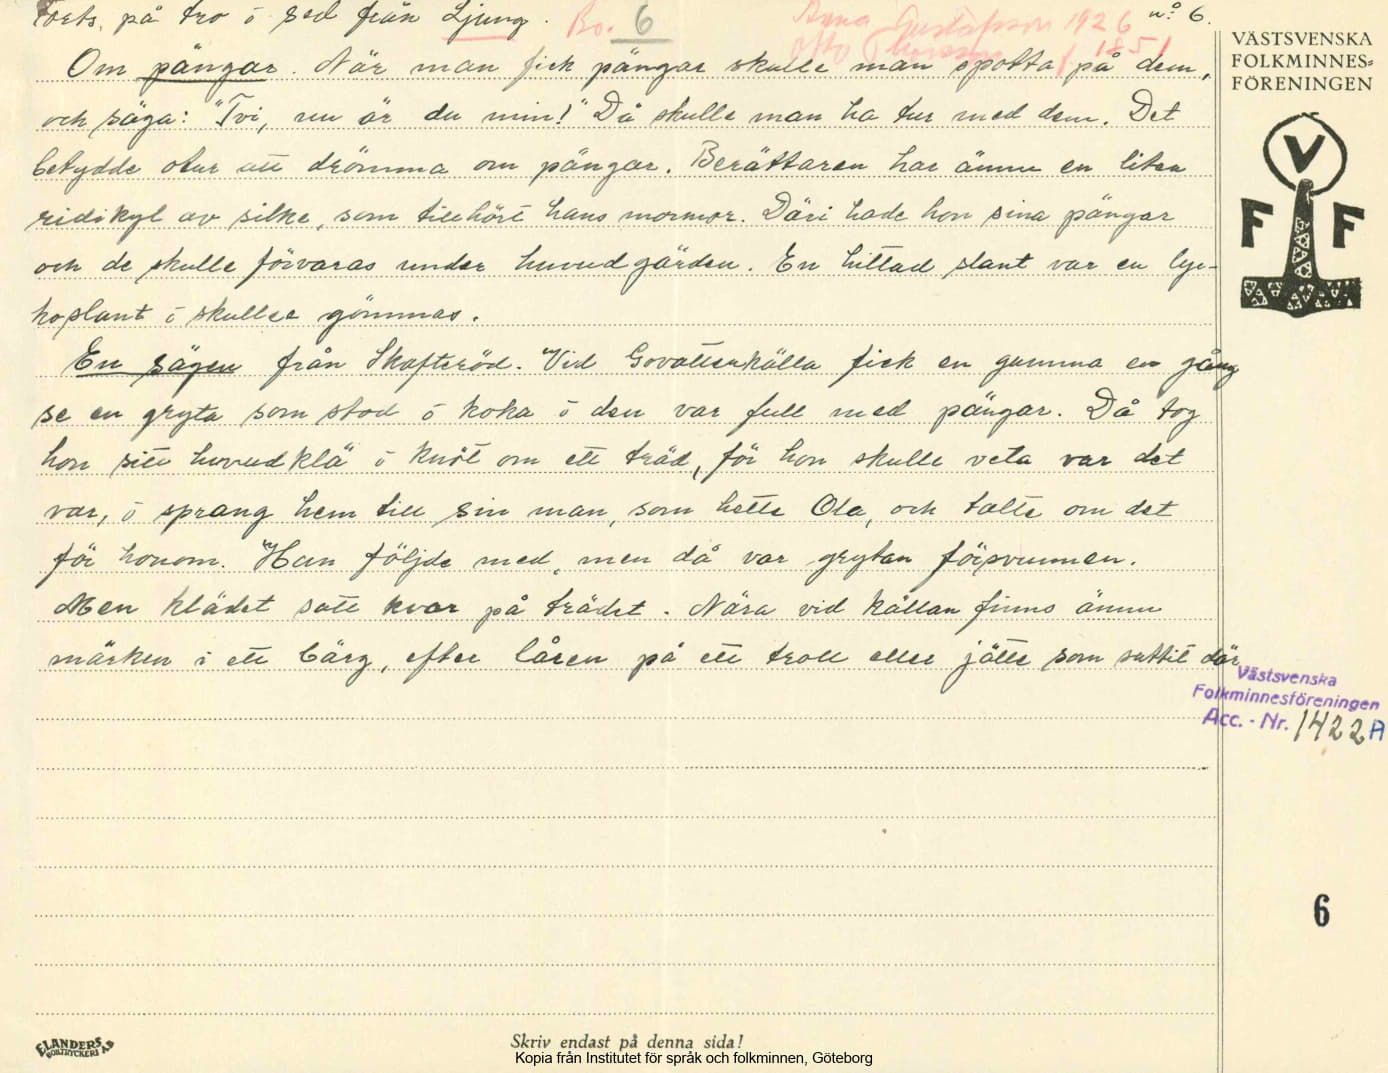 Forts. på tro ö sed från Ljung. Bo. 6 Anna Gustafsson 1926 nº 6.
Otto Thorsson f. 1851
VÄSTSVENSKA
FOLKMINNES=
FÖRENINGEN
Om pängar. När man fick pängar skulle man spotta på dem,
och säga: "Tvi, nu är du min!" Då skulle man ha tur med dem. Det
betydde otur att drömma om pängar. Berättaren har ännu en liten
ridikyl av silke, som tillhört hans mormor. Däri hade hon sina pängar
och de skulle förvaras under huvudgärden. En hittad slant var en lyc-
koslant ö skullee gömmas.
V
F F
En sägen från Skafteröd. "Vid Govattenkälla fick en gumma en gång
se en gryta som stod ö koka ö den var full med pängar. Då tog
hon sitt huvudklä ö knöt om ett träd, för hon skulle veta var det
var, ö sprang hem till sin man, som hette Ola, och talte om det
för honom. "Han följde med, men då var grytan försvunnen.
Men klädet satt kvar på trädet. Nära vid källan finns ännu
märken i ett bärg, efter låren på ett troll eller jätte som suttit där
Västsvenska
Folkminnesföreningen
Acc. - Nr. 1422 A
6
ELANDERS
BOKTRYCKERI AB
Skriv endast på denna sida!
Kopia från Institutet för språk och folkminnen, Göteborg